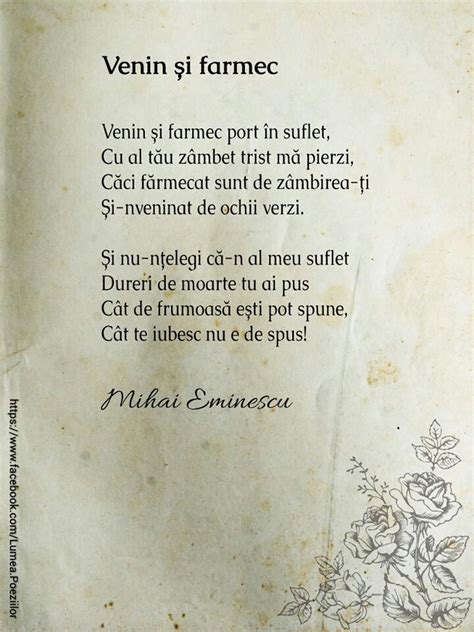 Venin și farmec
Venin și farmec port în suflet,
Cu al tău zâmbet trist mă pierzi,
Căci fărmecat sunt de zâmbirea-ți
Și-nveninat de ochii verzi.
Și nu-nțelegi că-n al meu suflet
Dureri de moarte tu ai pus
Cât de frumoasă ești pot spune,
Cât te iubesc nu e de spus!
Mihai Eminescu
https://www.facebook.com/Lumea.Poeziilor